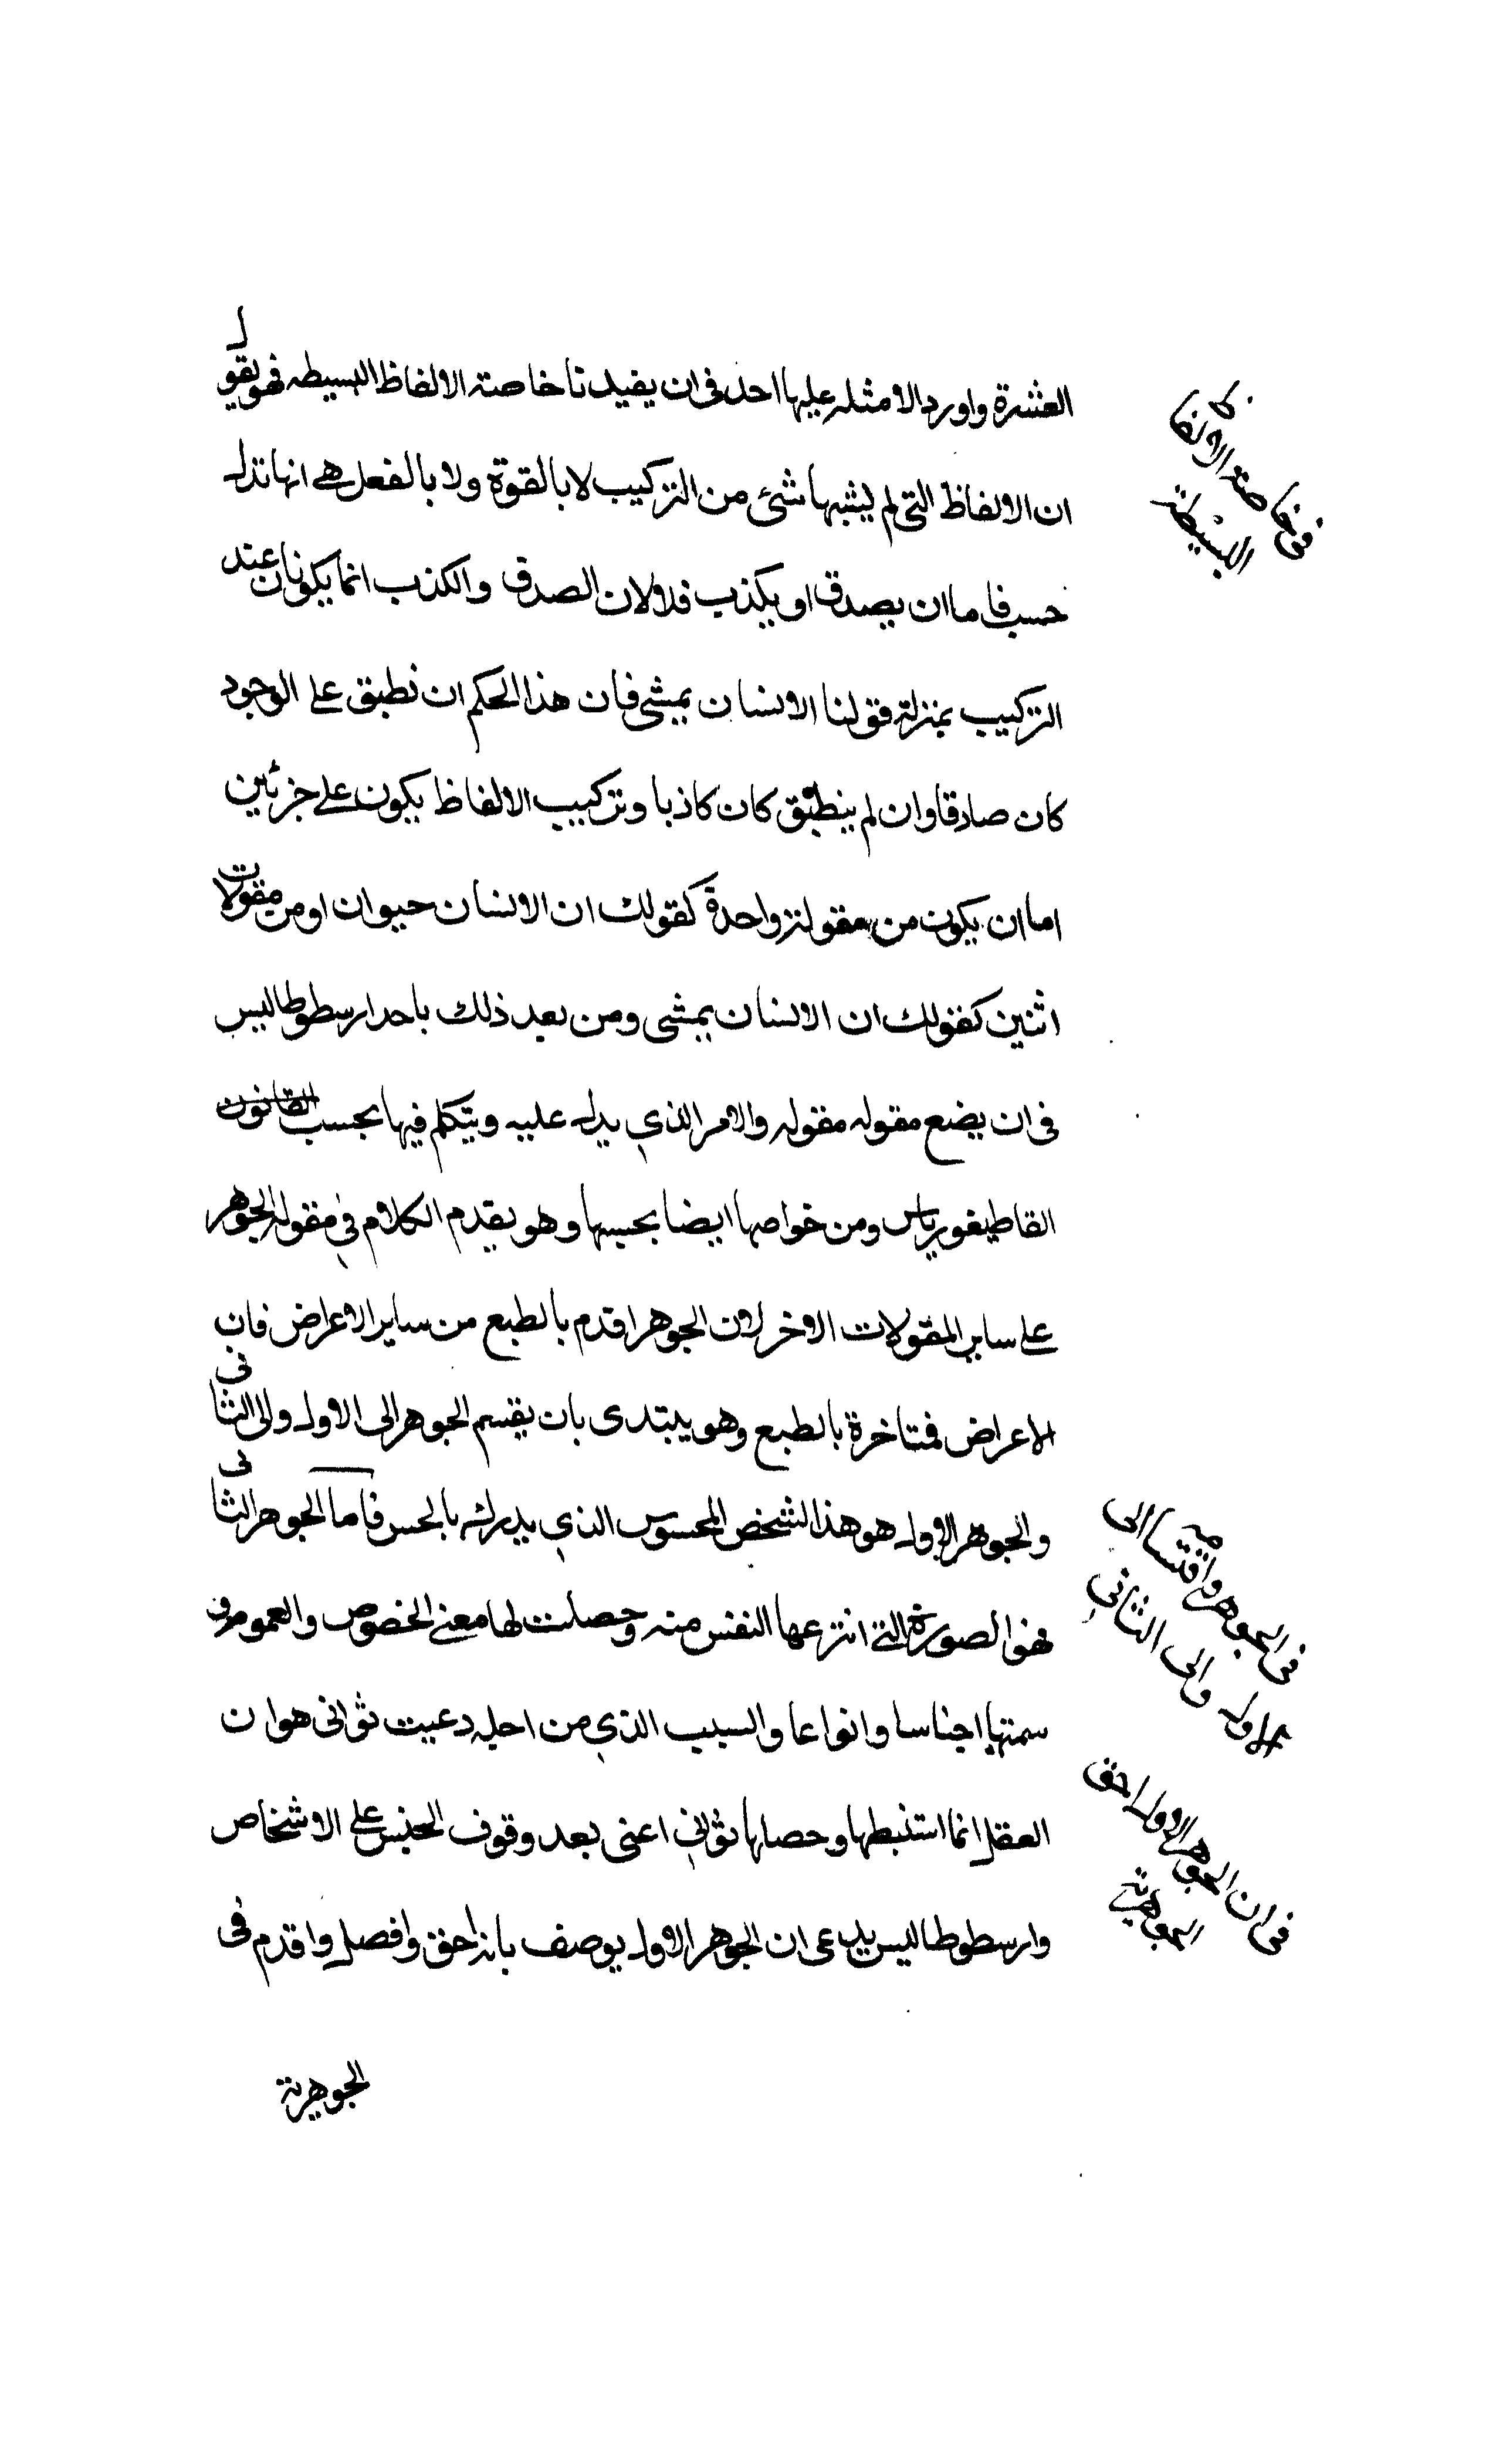 العشرة واورد الامثله عليها اخذ فى ان يفيدنا خاصته الالفاظ البسيطه فهو يقول
ان الالفاظ التى لم يشبها شئ من التركيب لا بالقوة ولا بالفعل هے انها تدل
حسب فاما ان يصدق او يكذب فلا ولان الصدق والكذب انما يكونان عند
التركيب بمنزلة قولنا الانسان يمشى فان هذا الحكم ان نطبق على الوجود
كان صادقا وان لم ينطبق كان كاذبا وتركيب الالفاظ يكون على جزئين
اما ان يكون من مقولة واحدة كقولك ان الانسان حيوان او من مقولات
اثنين كقولك ان الانسان يمشى ومن بعد ذلك ياخذ ارسطوطاليس
فى ان يضع مقوله مقوله والامر الذي يدل عليه ويتكلم فيها بحسب القانون
القاطيغورياس ومن خواصها ايضا بحسبها وهو يقدم الكلام في مقوله الجوهر
على ساير المقولات الاخر لان الجوهر اقدم بالطبع من ساير الاعراض فان
الاعراض فمتاخرة بالطبع وهو يبتدى بان يقسم الجوهر الى الاول والى الثانى
والجوهر الاول هو هذا الشخص المحسوس الذي يدركه بالحس فاما الجوهر الثانى
فهو الصورة التے انتزعها النفس منه وحصلت لها معنے الخصوص والعموم
سمتها اجناسا وانواعا والسبب الذي من اجله دعيت ثوانى هو ان
العقل انما استنبطها وحصلها ثوانى اعنى بعد وقوف الحس على الاشخاص
وارسطوطاليس يدعى ان الجوهر الاول يوصف بانه احق وافضل واقدم فى
الجوهرية
فى خاصته الالفاظ
البسيطة
فى الجوهر واقتسامه الى
الاول والى الثاني
فى ان الجوهر الاول احق
الجوهرية